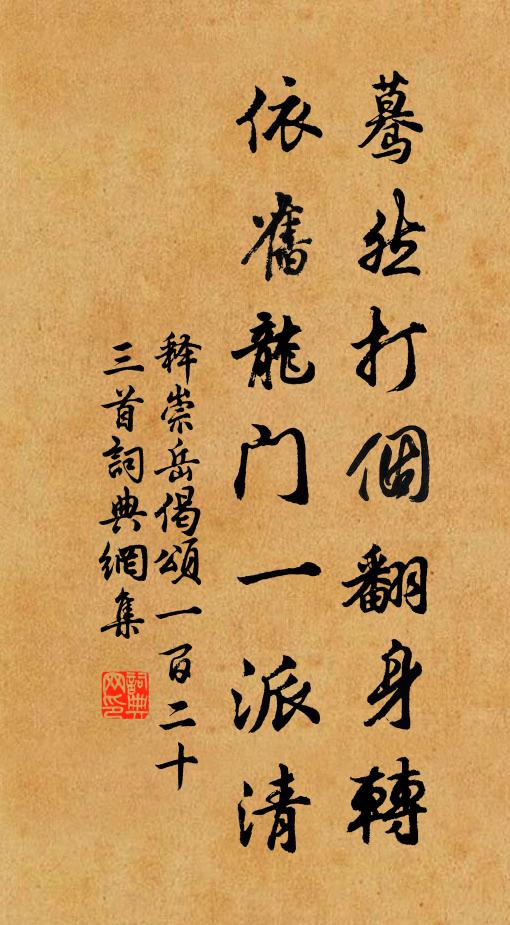 驀然打個翻身轉
依舊龍門一派清
释崇岳偈頌一百二十
三首詞典網集
詞典
网印